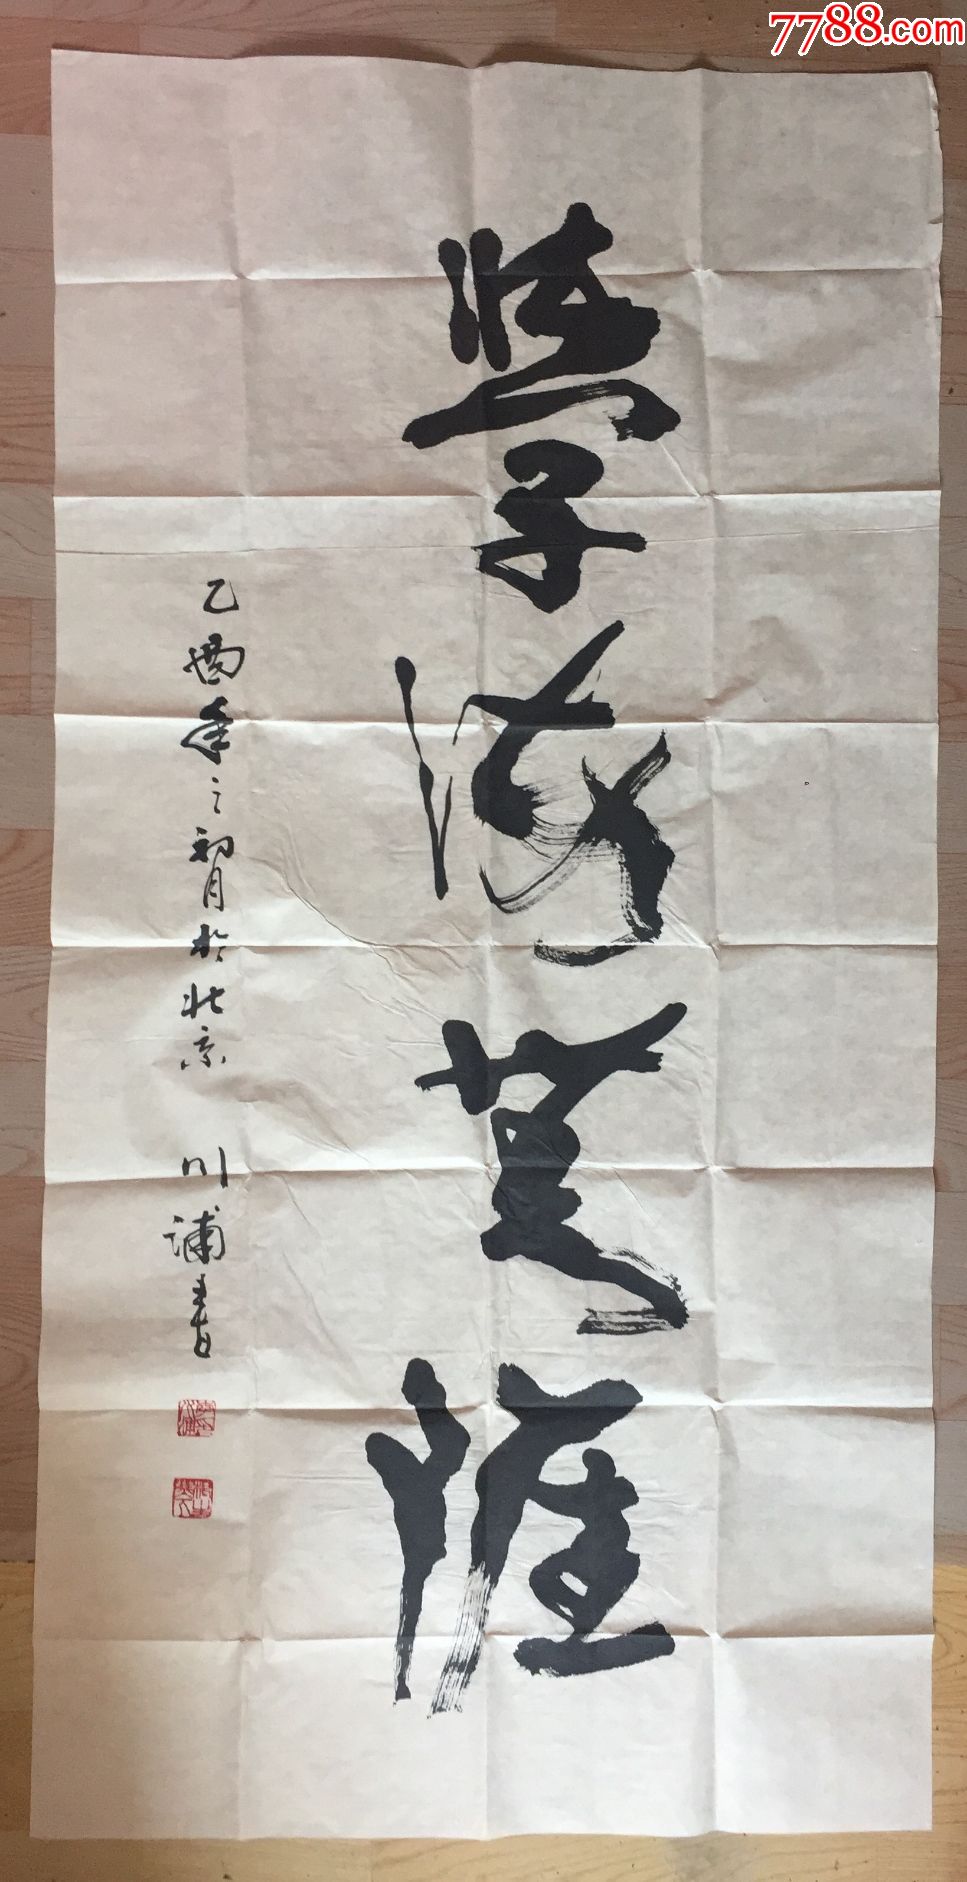 7788.com
學海無涯
乙酉年之初月於北京 川浦書